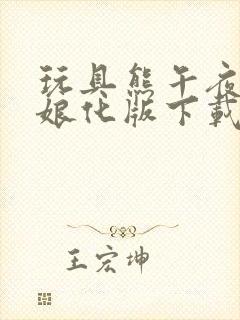 玩具熊午夜
娘化版下载
王宏坤